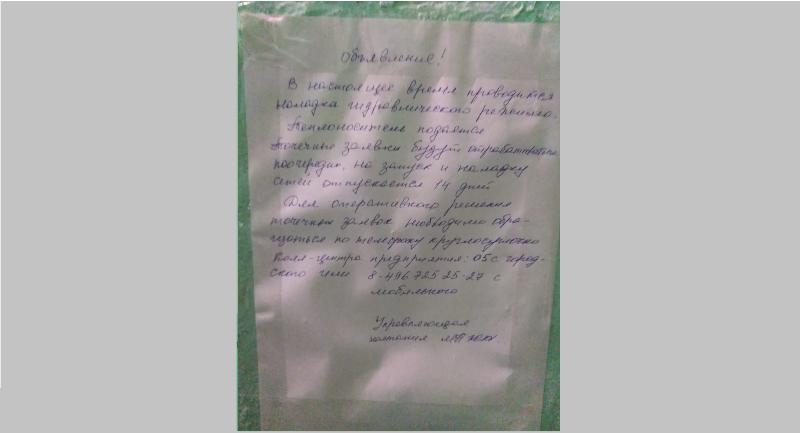 Объявление!
В настоящее время проводится
наладка гидравлического режима.
Теплоноситель подается
Точечные заявки будут отрабатываться
поочередно. На запуск и наладку
сетей отпускается 14 дней
Для оперативного решения
точечных заявок необходимо обра-
щаться по телефону круглосуточно
Колл-центра предприятия: 05 с город-
ского или 8-496 725 25-27 с
мобильного
Управляющая
компания